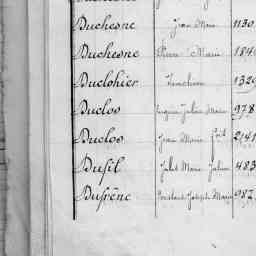 Duchesne Jean Marie 1130
Duchesne Pierre Marie 184
Duclohier 1329
Duclos Eugène Julien Marie 978
Duclos Jean Marie 2141
Dufil Jules Marie Julien 483
Dufrêne Joseph Marie 987